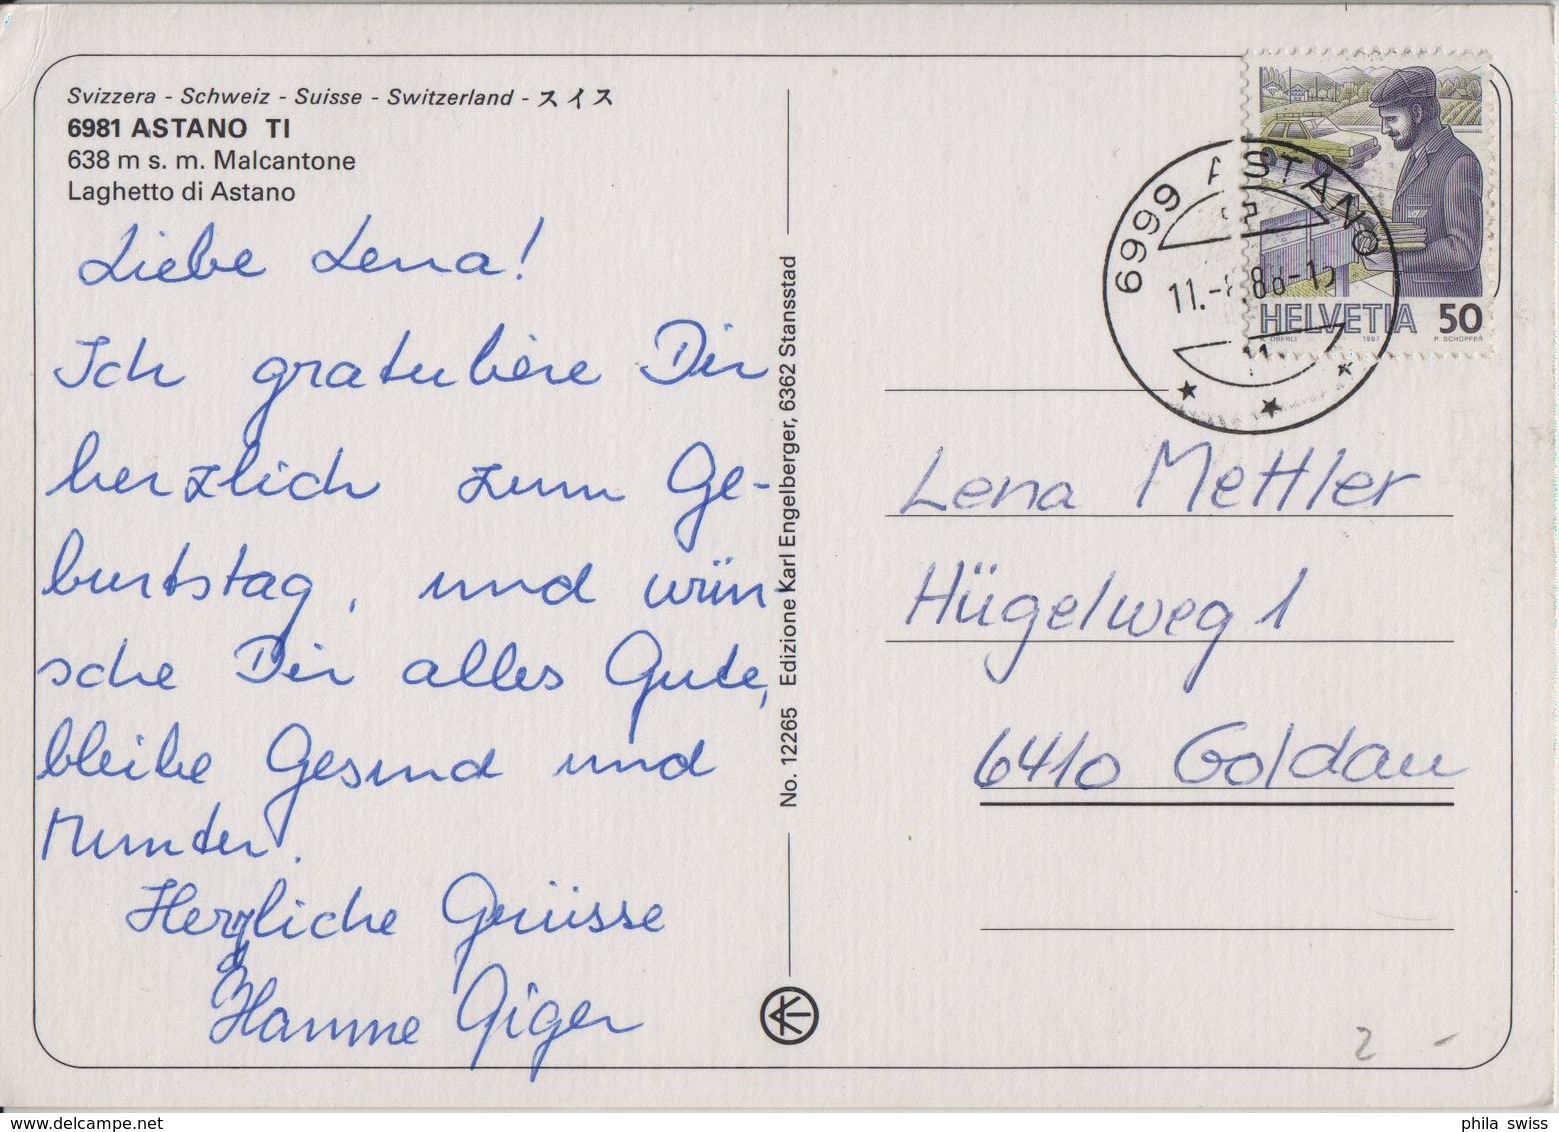 Svizzera - Schweiz - Suisse - Switzerland - スイス
6981 ASTANO TI
638 m s. m. Malcantone
Laghetto di Astano
Liebe Lena!
Ich gratuliere Dir
herzlich zum Ge-
burtstag, und wün-
sche Dir alles Gute,
bleibe Gesund und
Munter.
Herzliche Grüsse
Hanne Giger
No. 12265 Edizione Karl Engelberger, 6362 Stansstad
6999 ASTANO
HELVETIA 50
K. OBERLI 1987 P. SCHOPFER
Lena Mettler
Hügelweg 1
6410 Goldau
2 -
phila swiss
www.delcampe.net